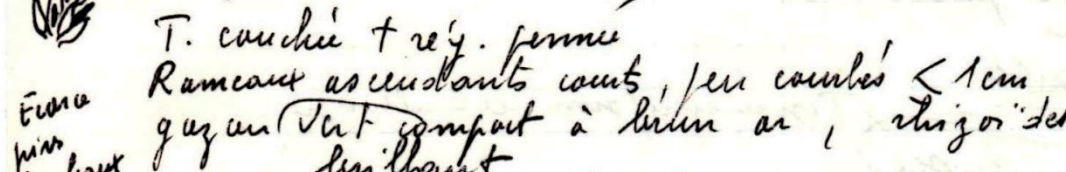 T. couchée + rég. pennée
Rameaux ascendants courts, peu courbés < 1cm
gazon vert compact à brun or, rhizoïdes
brillant
Ecorce
pins